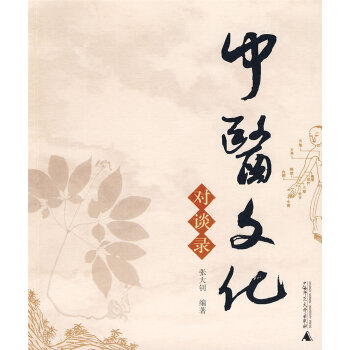 中醫文化
对谈录
张大钊 编著
广西师范大学出版社